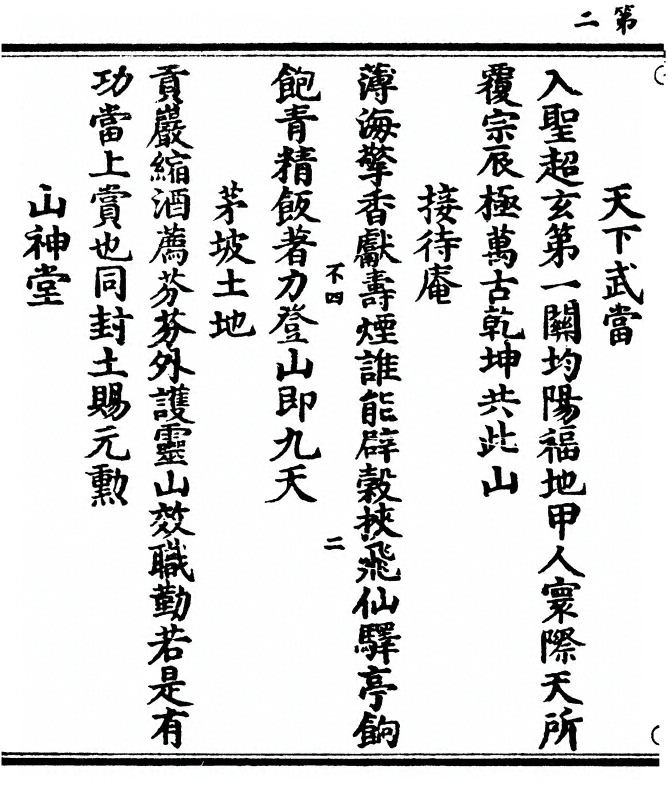 第二
天下武當
入聖超玄第一關均陽福地甲人寰際天所
覆宗辰極萬古乾坤共此山
接待庵
薄海擎香獻壽煙誰能辟穀挾飛仙驛亭餉
不四
二
飽青精飯著力登山即九天
茅坡土地
貢嚴縮酒薦芬芬外護靈山效職勤若是有
功當上賞也同封土賜元勳
山神堂